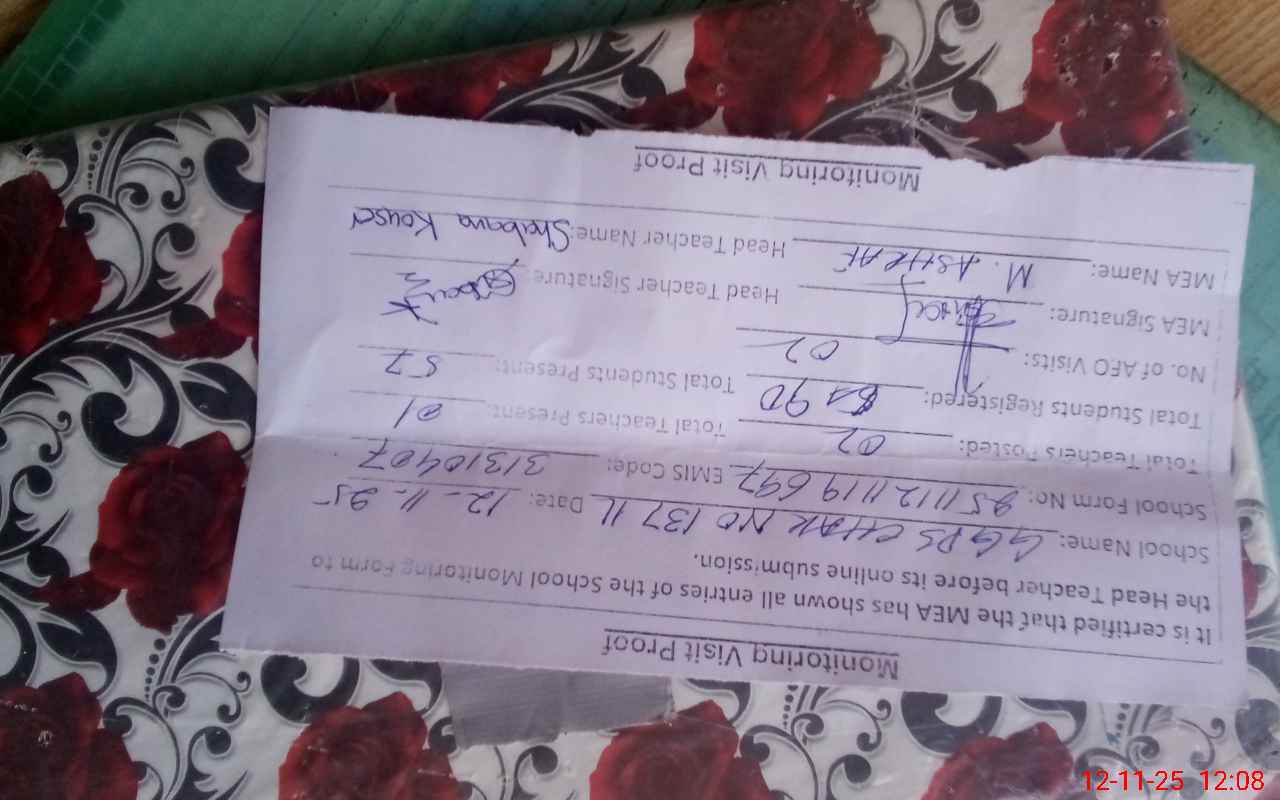 Monitoring Visit Proof
It is certified that the MEA has shown all entries of the School Monitoring Form to
the Head Teacher before its online submission.
School Name: GGPS CHAK NO 137 1L Date: 12-11-25
School Form No: 2511121119697 EMIS Code: 31310407
Total Teachers Posted: 02 Total Teachers Present: 01
Total Students Registered: 90 Total Students Present: 57
No. of AEO Visits: 02
MEA Signature: Head Teacher Signature:
MEA Name: M. ASHRAF Head Teacher Name: Shabana Kousar
Monitoring Visit Proof
12-11-25 12:08